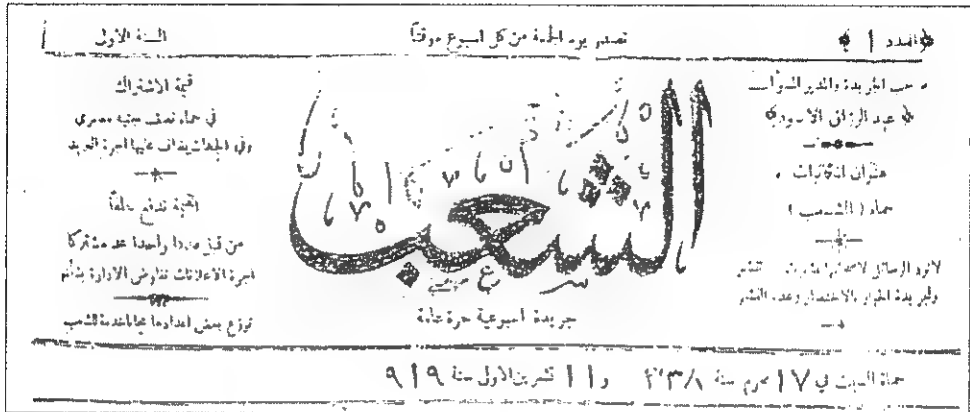 العدد ١
تصدر يوم الجمعة من كل اسبوع موقتاً
السنة الاولى
صاحب الجريدة والمدير المسؤول
عبد الرزاق الاسود
عنوان المكاتبات
حماه ( الشعب )
لاترد الرسائل لاصحابها نشرت
وللجريدة الخيار بالاختصار وعدم النشر
الشعب
جريدة اسبوعية حرة عامة
قيمة الاشتراك
في حماه نصف جنيه مصري
وفي الجهات يضاف عليها اجرة البريد
القيمة تدفع سلفاً
من قبل عدداً واحداً عد مشتركا
اجرة الاعلانات تفاوض الادارة بشأنها
توزع بعض اعدادها مجانا خدمة للشعب
حماه السبت في ١٧ محرم سنة ١٣٣٨ و ١١ تشرين الاول سنة ٩١٩